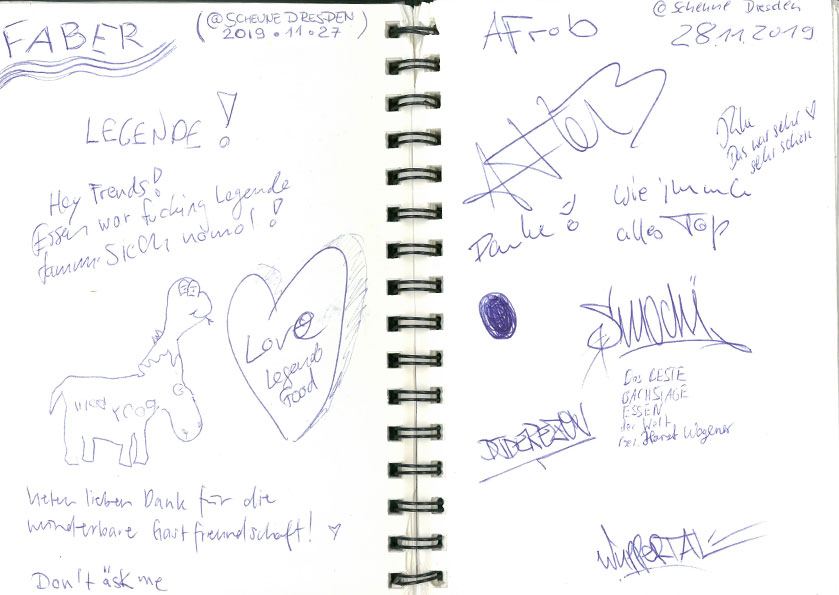 FABER
(@SCHEUNE DRESDEN
2019.11.27)
LEGENDE!
Hey Freunds!
Essen war fucking Legende
nomol!
Love
Legends
Food
Vielen lieben Dank für die
wunderbare Gastfreundschaft!
Don't äsk me
AFrob
@Scheune Dresden
28.11.2019
Das war sehr
sehr schön
Danke!
Wie immer
alles Top
Das BESTE
BACKSTAGE
ESSEN
der Welt
bei Horst Wagener
WUPPERTAL